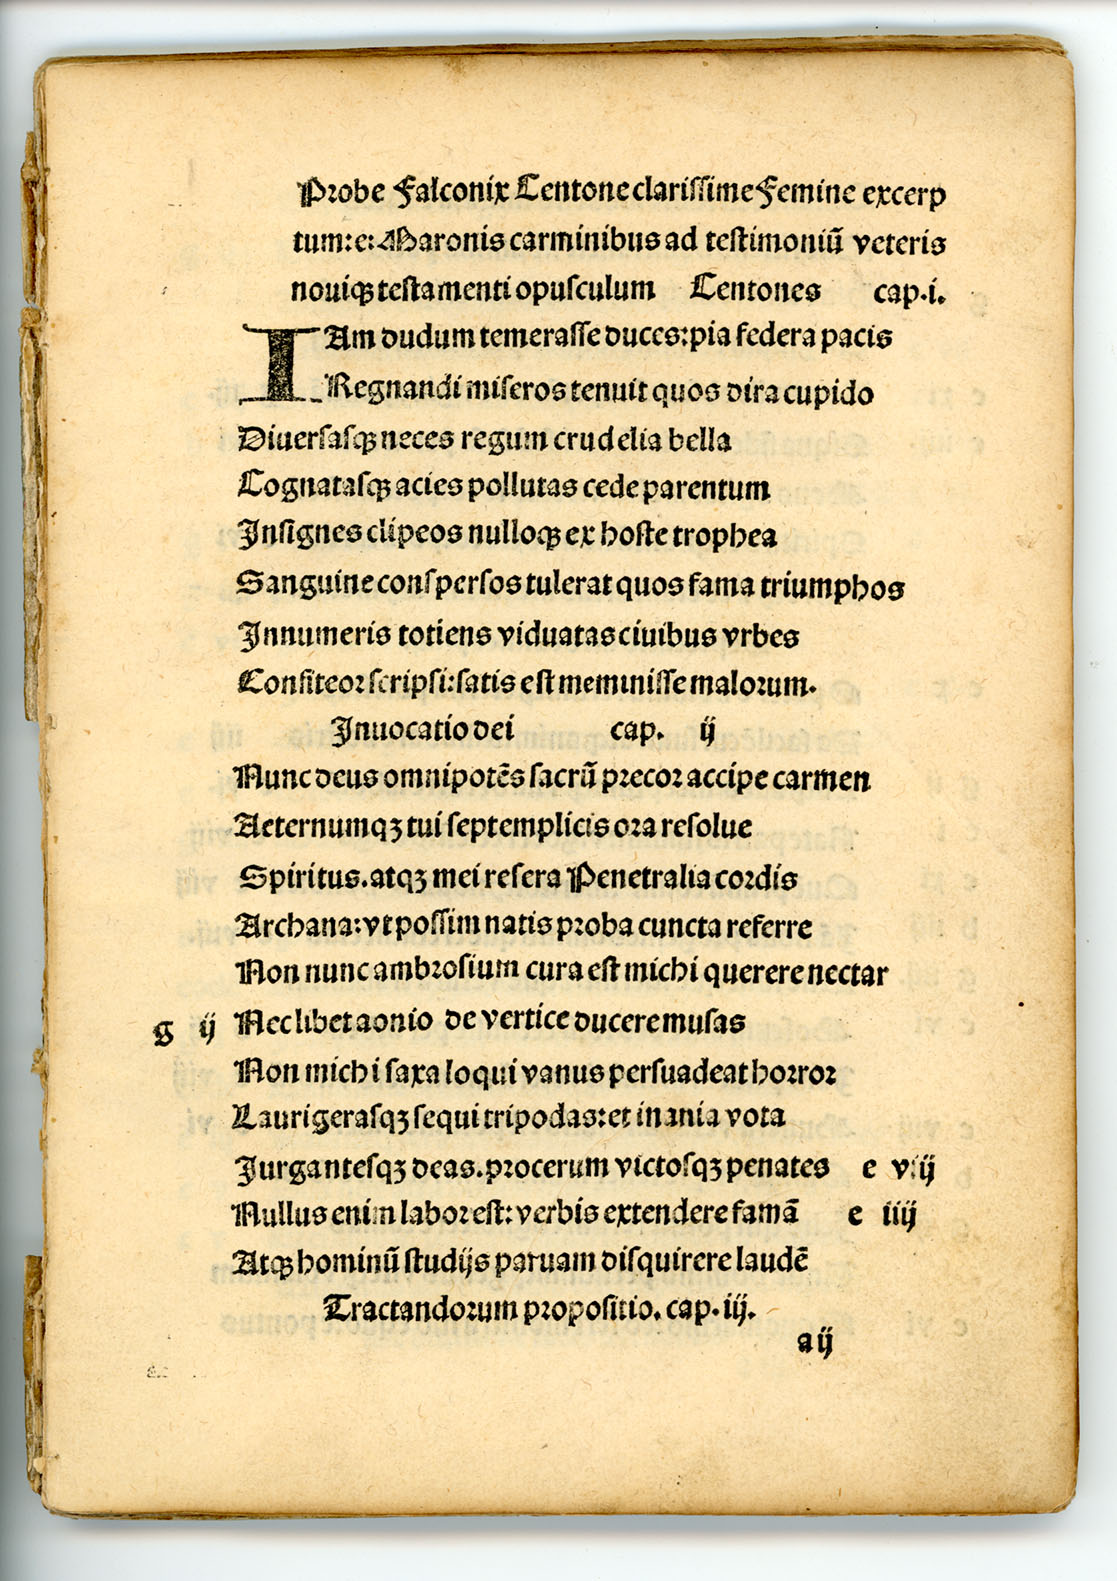 Probe Falconix Centone clarissime Femine excerp
tum:e:Maronis carminibus ad testimoniū veteris
nouiqꝫ testamenti opusculum Centones cap.i.
IAm dudum temerasse duces:pia federa pacis
Regnandi miseros tenuit quos dira cupido
Diuersasqꝫ neces regum crudelia bella
Cognatasqꝫ acies pollutas cede parentum
Insignes clipeos nulloqꝫ ex hoste trophea
Sanguine conspersos tulerat quos fama triumphos
Innumeris totiens viduatas ciuibus vrbes
Confiteor scripsi:satis est meminisse malorum.
Inuocatio dei cap. ij
Nunc deus omnipotēs sacrū precor accipe carmen
Aeternumqꝫ tui septemplicis ora resolue
Spiritus.atqꝫ mei resera Penetralia cordis
Archana:vt possim natis proba cuncta referre
Non nunc ambrosium cura est michi querere nectar
g ij Nec libet aonio de vertice ducere musas
Non michi saxa loqui vanus persuadeat horror
Laurigerasqꝫ sequi tripodas:et inania vota
Jurgantesqꝫ deas.procerum victosqꝫ penates e viij
Nullus enim labor est:verbis extendere famā e iiij
Atqꝫ hominū studijs paruam disquirere laudē
Tractandorum propositio. cap. iij.
a ij